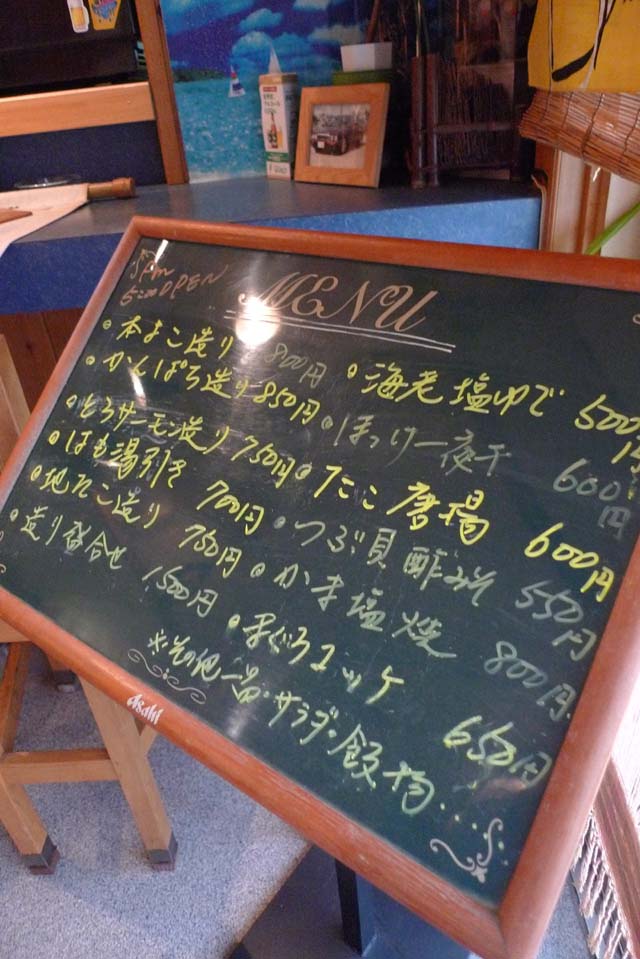 5pm
5:00 OPEN
MENU
•本まこ造り 800円
•かんぱち造り 850円
•とろサーモン造り 750円
•はも湯引き 700円
•地たこ造り 750円
•造り盛合せ 1500円
•海老塩ゆで 500
•ほっけ一夜干 600円
•たこ唐揚 600円
•つぶ貝酢みそ 550円
•かま塩焼 800円
•まぐろユッケ 650円
※その他一品・サラダ・飯物…
Asahi